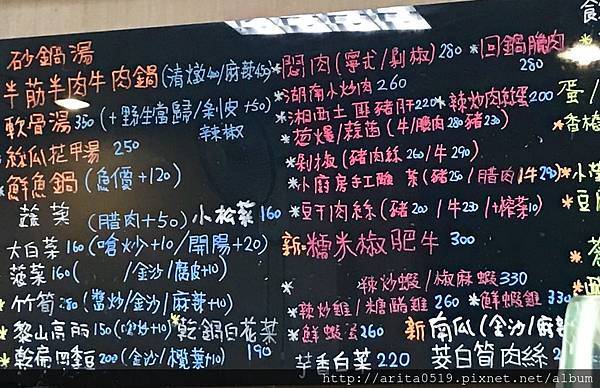 砂鍋湯
半筋半肉牛肉鍋(清燉400/麻辣450)
軟骨湯350(+野生當歸/剝皮辣椒+50)
絲瓜花甲湯 250
*鮮魚鍋(魚價+120)
蔬菜(臘肉+50)小松菜160
大白菜160(嗆炒+10/開陽+20)
菠菜160( /金沙/腐皮+10)
*竹筍180(醬炒/金沙/麻辣+10)
*黎山高麗150(嗆炒+10)*乾鍋白花菜190
*乾扁四季豆200(金沙/欖菜+10)
*悶肉(寧式/剁椒)280
*回鍋臘肉280
*湖南小炒肉260
*湘西土匪豬肝220*辣炒肉紅蛋200
*蔥爆/蒜苗(牛/臘肉280豬230)
*剁椒(豬肉絲260/牛290)
*小廚房手工酸菜(豬250/臘肉/牛290)
*豆干肉絲(豬200/牛230/+榨菜10)
新*糯米椒肥牛 300
*辣炒蝦/椒麻蝦330
*辣炒雞/糖醋雞260*鮮蝦雞330
*鮮蝦蛋260
新南瓜(金沙/麻辣
芋香白菜220
茭白筍肉絲2
食
蛋/
*香椿
*小
*豆
http://arita0519.pixnet.net/album